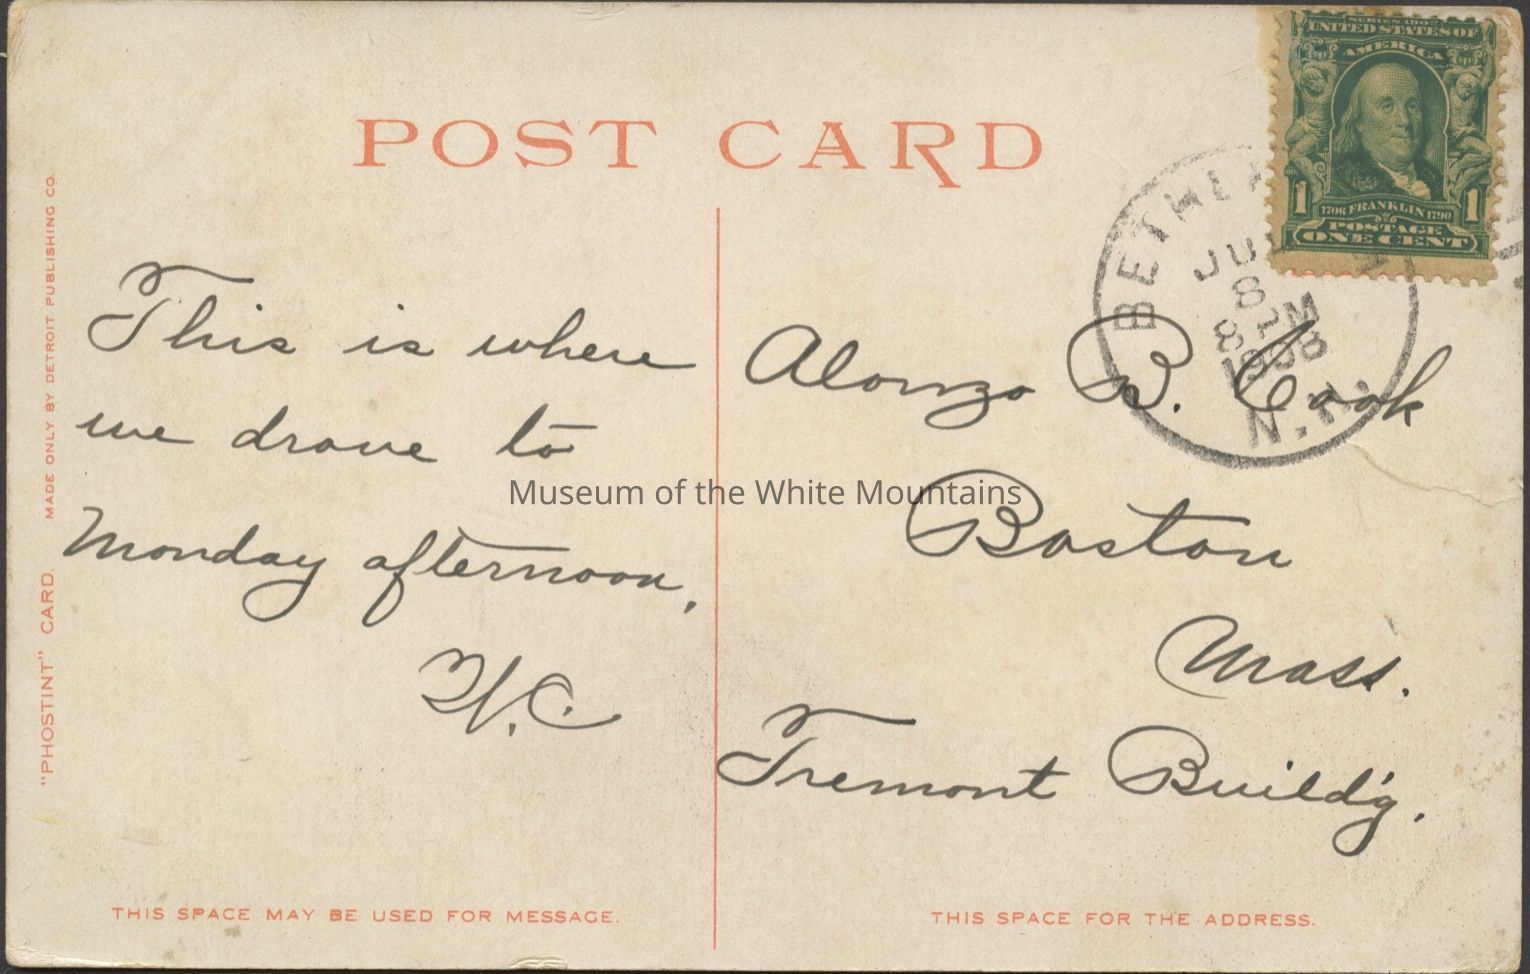 POST CARD
"PHOSTINT" CARD. MADE ONLY BY DETROIT PUBLISHING CO.
This is where
we drove to
Monday afternoon.
W.C.
THIS SPACE MAY BE USED FOR MESSAGE.
SERIES 1902
UNITED STATES OF
AMERICA
1 1
1706 FRANKLIN 1790
POSTAGE
ONE CENT
BETHLE
JU
8
8 M
1908
N.H.
Alonzo B. Cook
Boston
Mass.
Tremont Build'g.
THIS SPACE FOR THE ADDRESS.
Museum of the White Mountains